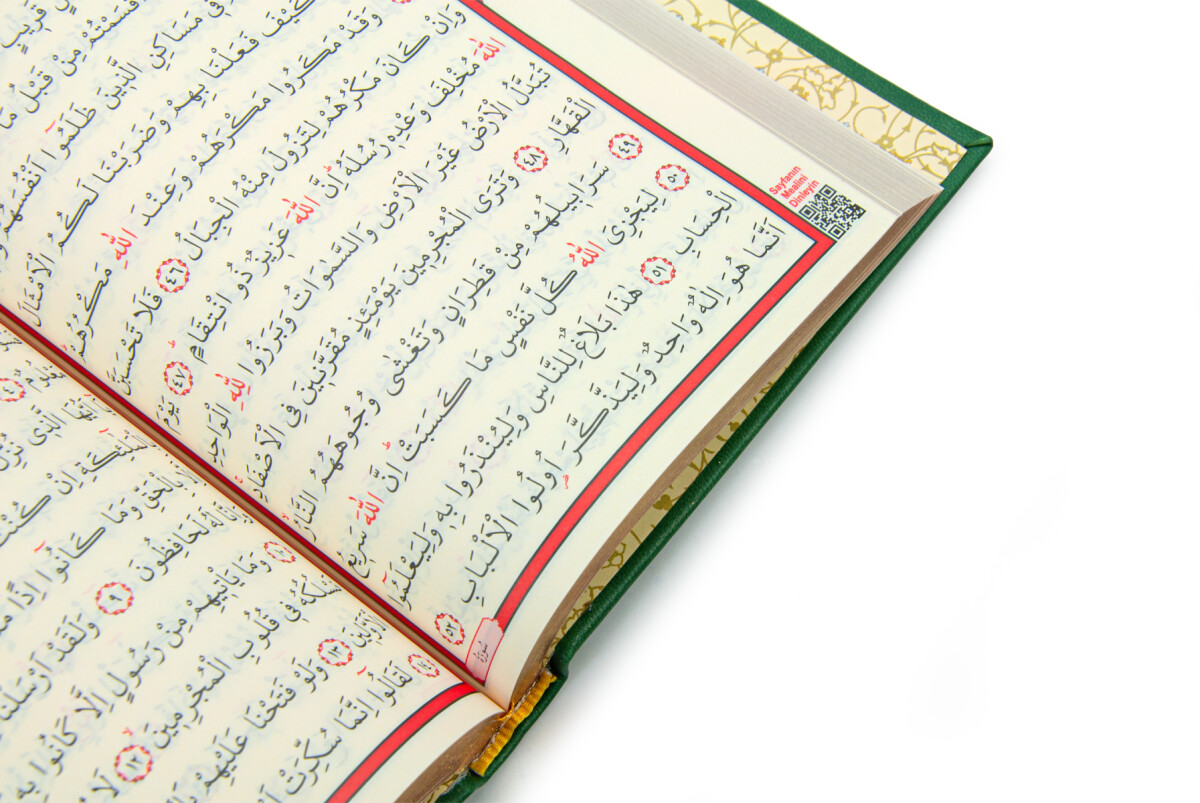 قَرِيبٍ
مِنْ قَبْلُ مَا
مَسَاكِنِ الَّذِينَ ظَلَمُٓوا اَنْفُسَهُمْ
كَيْفَ فَعَلْنَا بِهِمْ وَضَرَبْنَا لَكُمُ الْاَمْثَالَ
وَقَدْ مَكَرُوا مَكْرَهُمْ وَعِنْدَ اللّٰهِ مَكْرُهُمْ
وَاِنْ كَانَ مَكْرُهُمْ لِتَزُولَ مِنْهُ الْجِبَالُ ٤٦ فَلَا تَحْسَبَنَّ
اللّٰهَ مُخْلِفَ وَعْدِهِ رُسُلَهُ اِنَّ اللّٰهَ عَزِيزٌ ذُو انْتِقَامٍ ٤٧ يَوْمَ
تُبَدَّلُ الْاَرْضُ غَيْرَ الْاَرْضِ وَالسَّمٰوَاتُ وَبَرَزُوا لِلّٰهِ الْوَاحِدِ
الْقَهَّارِ ٤٨ وَتَرَى الْمُجْرِمِينَ يَوْمَئِذٍ مُقَرَّنِينَ فِى الْاَصْفَادِ
٤٩ سَرَابِيلُهُمْ مِنْ قَطِرَانٍ وَتَغْشٰى وُجُوهَهُمُ النَّارُ
٥٠ لِيَجْزِىَ اللّٰهُ كُلَّ نَفْسٍ مَا كَسَبَتْ اِنَّ اللّٰهَ سَرِيعُ
الْحِسَابِ ٥١ هٰذَا بَلَاغٌ لِلنَّاسِ وَلِيُنْذَرُوا بِهِ وَلِيَعْلَمُٓوا
اَنَّمَا هُوَ اِلٰهٌ وَاحِدٌ وَلِيَذَّكَّرَ اُولُوا الْاَلْبَابِ ٥٢
Sayfanın
Mealini
Dinleyin
سُورَةُ
الَّذِى نُزِّلَ
اِنْ كُنْتَ
بِالْحَقِّ وَمَا كَانُٓوا اِذًا
لَهُ لَحَافِظُونَ ٩ وَلَقَدْ اَرْسَلْنَا
وَمَا يَاْتِيهِمْ مِنْ رَسُولٍ اِلَّا كَانُوا بِهِ
نَسْلُكُهُ فِى قُلُوبِ الْمُجْرِمِينَ ١٢ لَا
الْاَوَّلِينَ ١٣ وَلَوْ فَتَحْنَا عَلَيْهِمْ
١٤ لَقَالُٓوا اِنَّمَا سُكِّرَتْ